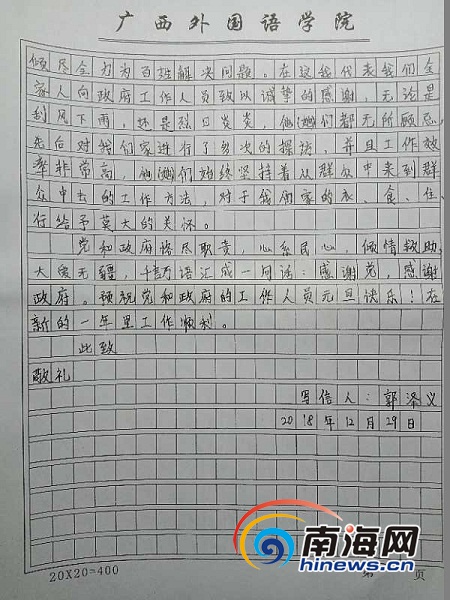 广西外国语学院
倾尽全力为百姓解决问题。在这我代表我们全
家人向政府工作人员致以诚挚的感谢，无论是
刮风下雨，还是烈日炎炎，他她们都无所顾忌，
先后对我们家进行了多次的探访，并且工作效
率非常高，他她们始终坚持着从群众中来到群
众中去的工作方法，对于我们家的衣、食、住、
行给予莫大的关怀。
党和政府恪尽职责，心系民心，倾情救助，
大爱无疆，千言万语汇成一句话：感谢党，感谢
政府。预祝党和政府的工作人员元旦快乐！在
新的一年里工作顺利。
此致
敬礼
写信人：郭泽义
2018年12月29日
20X20=400
第 页
南海网
hinews.cn